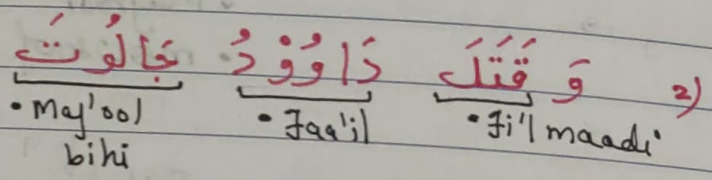 2) وَ قَتَلَ دَاوُوْدُ جَالُوْتَ
• Fi'l maadi • Faa'il • Maf'ool
bihi